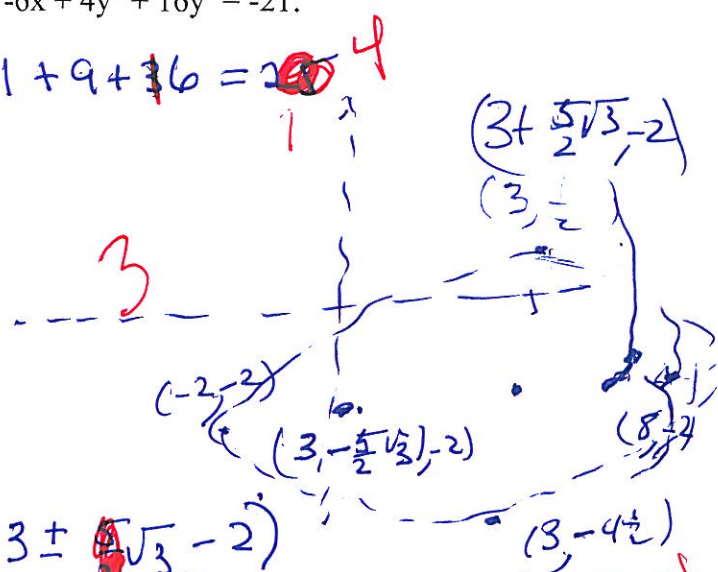 -6x + 4y² + 16y = -21.
1 + 9 + 16 = 2
4
1
(3 + 5/2 √3, -2)
(3, 1/2)
3
(-2, -2)
(3, -5/2 √3), -2)
(8, -2)
3 ± √3 - 2)
(3, -4 1/2)